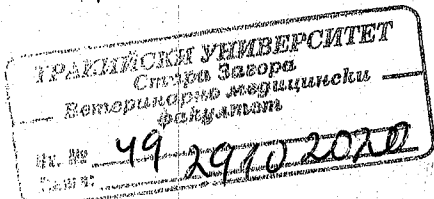 ТРАКИЙСКИ УНИВЕРСИТЕТ
Стара Загора
Ветеринарно медицински
факултет
№ 49 29 10 2020